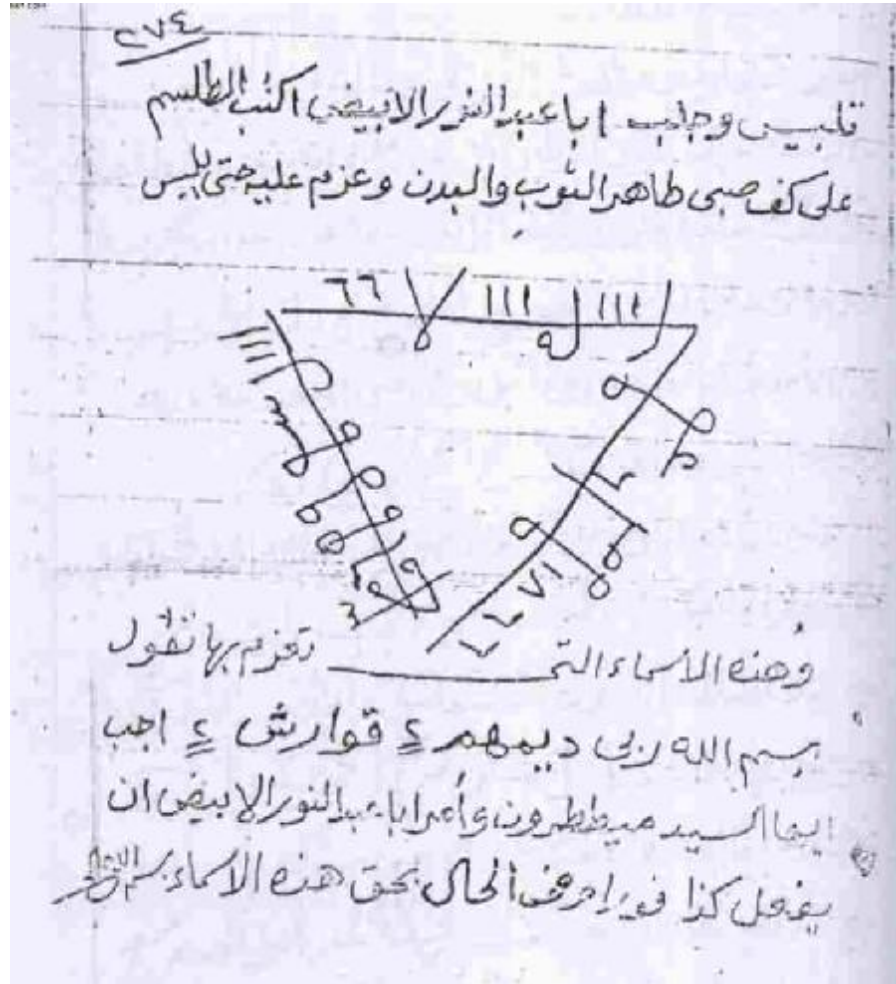 ٢٧٤
تلبيس وجلب ابا عبد النور الابيض اكتب الطلسم
على كف صبى طاهر الثوب والبدن وعزم عليه حتى يلبس
٦٦ ااا ااا
وهذه الاسماء التى تعزم بها تقول
بسم الله ربى ديمهم ٤ قوارش ٤ اجب
ايها السيد ميططرون وأمر ابا عبد النور الابيض ان
يفعل كذا فى الحال بحق هذه الاسماء